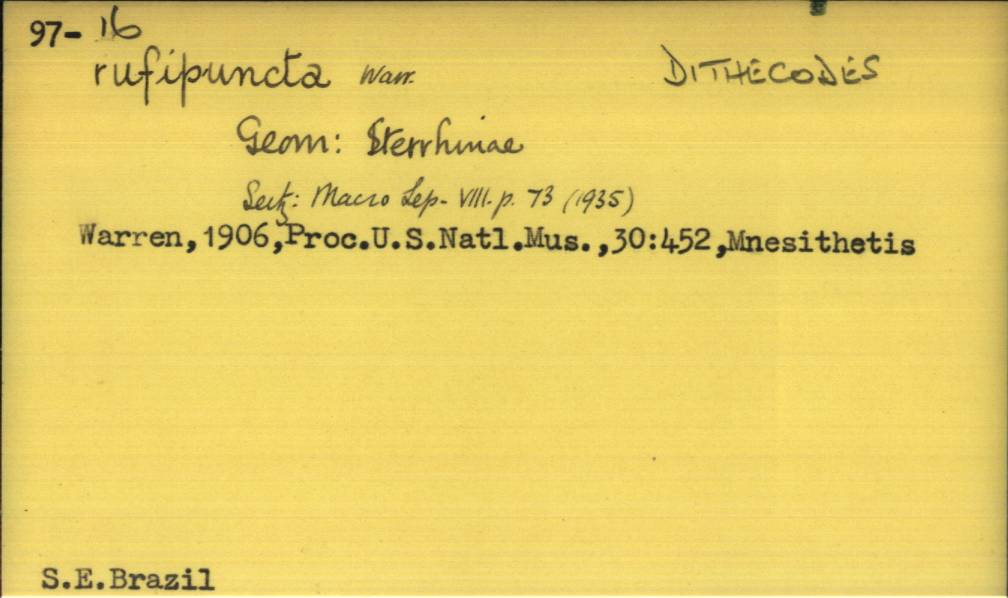 97-16
rufipuncta Warr. DITHECODES
Geom: Sterrhinae
Seitz: Macro Lep. VIII. p. 73 (1935)
Warren,1906,Proc.U.S.Natl.Mus.,30:452,Mnesithetis
S.E.Brazil